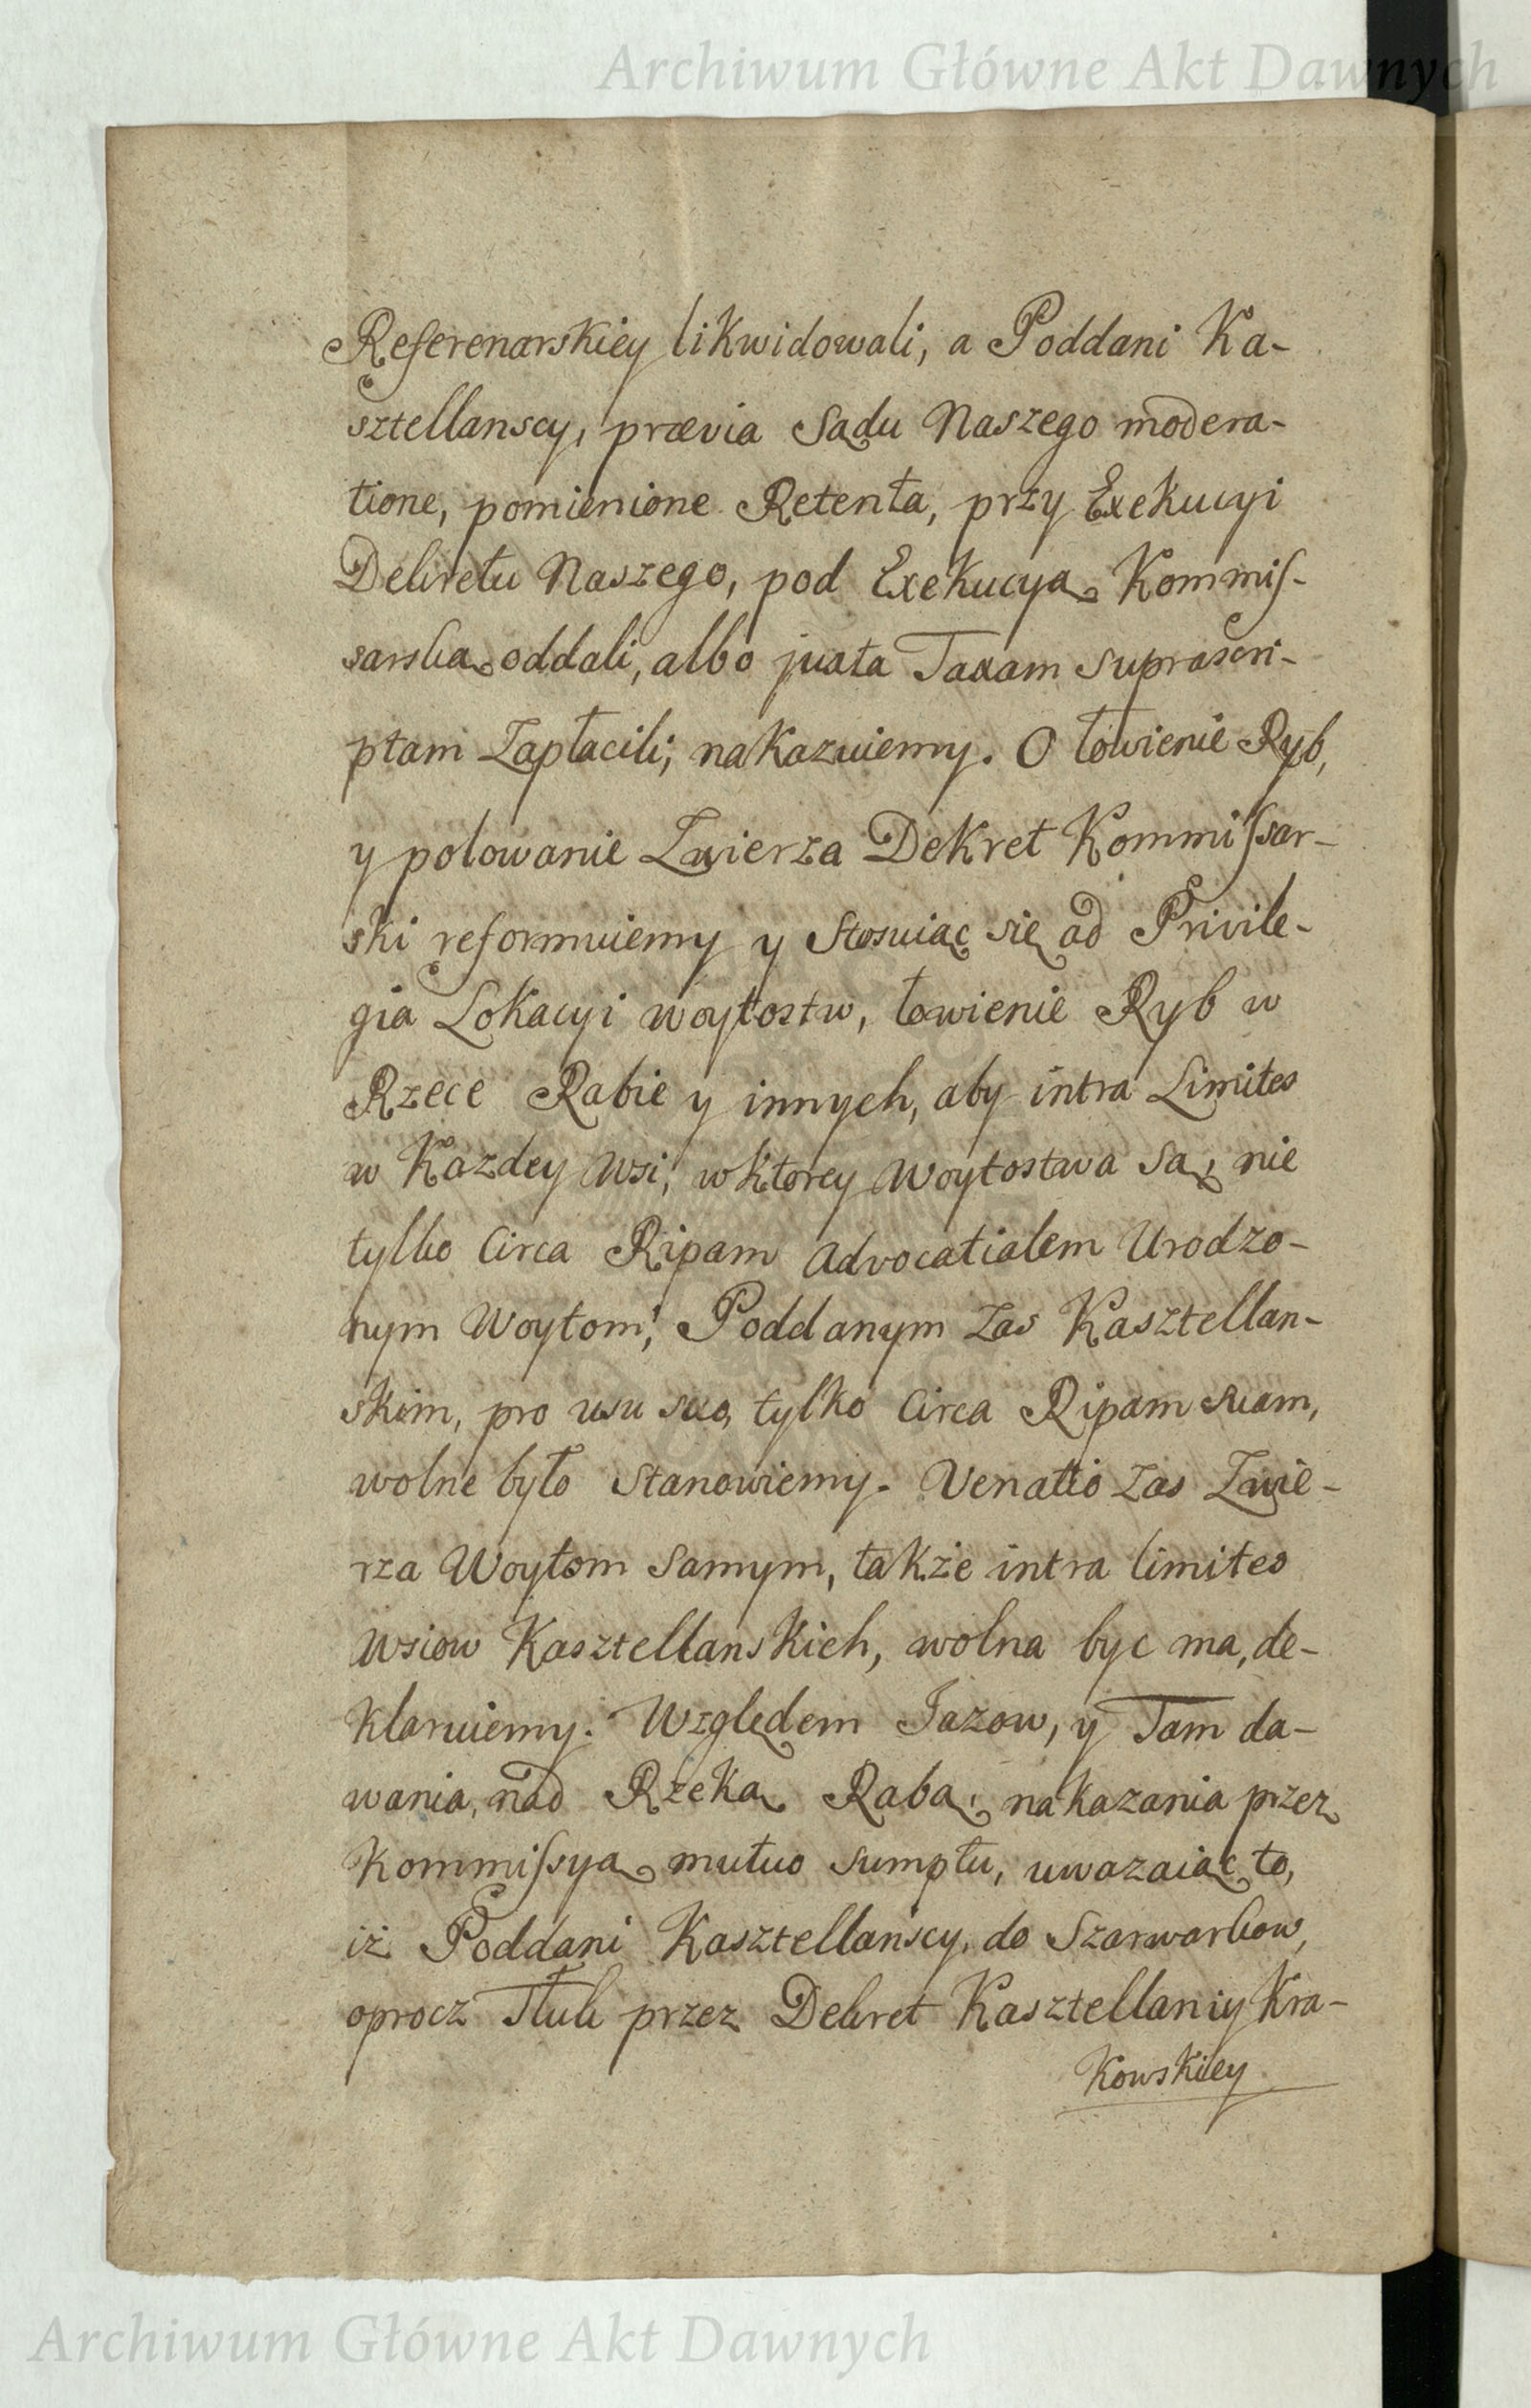 Archiwum Główne Akt Dawnych
Referenarskiey likwidowali, a Poddani Ka-
sztellanscy, prævia Sądu Naszego modera-
tione, pomienione Retenta, przy Exekucyi
Dekretu Naszego, pod Exekucyą Kommis-
sarską oddali, albo juxta Taxam suprascri-
ptam Zapłacili; nakazuiemy. O łowienie Ryb,
y polowanie Zwierza Dekret Kommissar-
ski reformuiemy y Stosuiąc się ad Privile-
gia Lokacyi woytostw, łowienie Ryb w
Rzece Rabie y innych, aby intra Limites
w Kazdey Wsi, wktorey Woytostwa Są, nie
tylko Circa Ripam Advocatialem Urodzo-
nym Woytom, Poddanym Zas Kasztellan-
skim, pro usu suo, tylko Circa Ripam suam,
wolne było Stanowiemy. Venatio Zas Zwie-
rza Woytom Samym, także intra limites
Wsiow Kasztellanskich, wolna byc ma, de-
klaruiemy. Względem Jazow, y Tam da-
wania, nad Rzeką Rabą, nakazania przez
Kommissyą mutuo sumptu, uwazaiąc to,
iż Poddani Kasztellańscy, do Szarwarkow,
oprocz Tłuk przez Dekret Kasztellaniy Kra-
kowskiey
Archiwum Główne Akt Dawnych